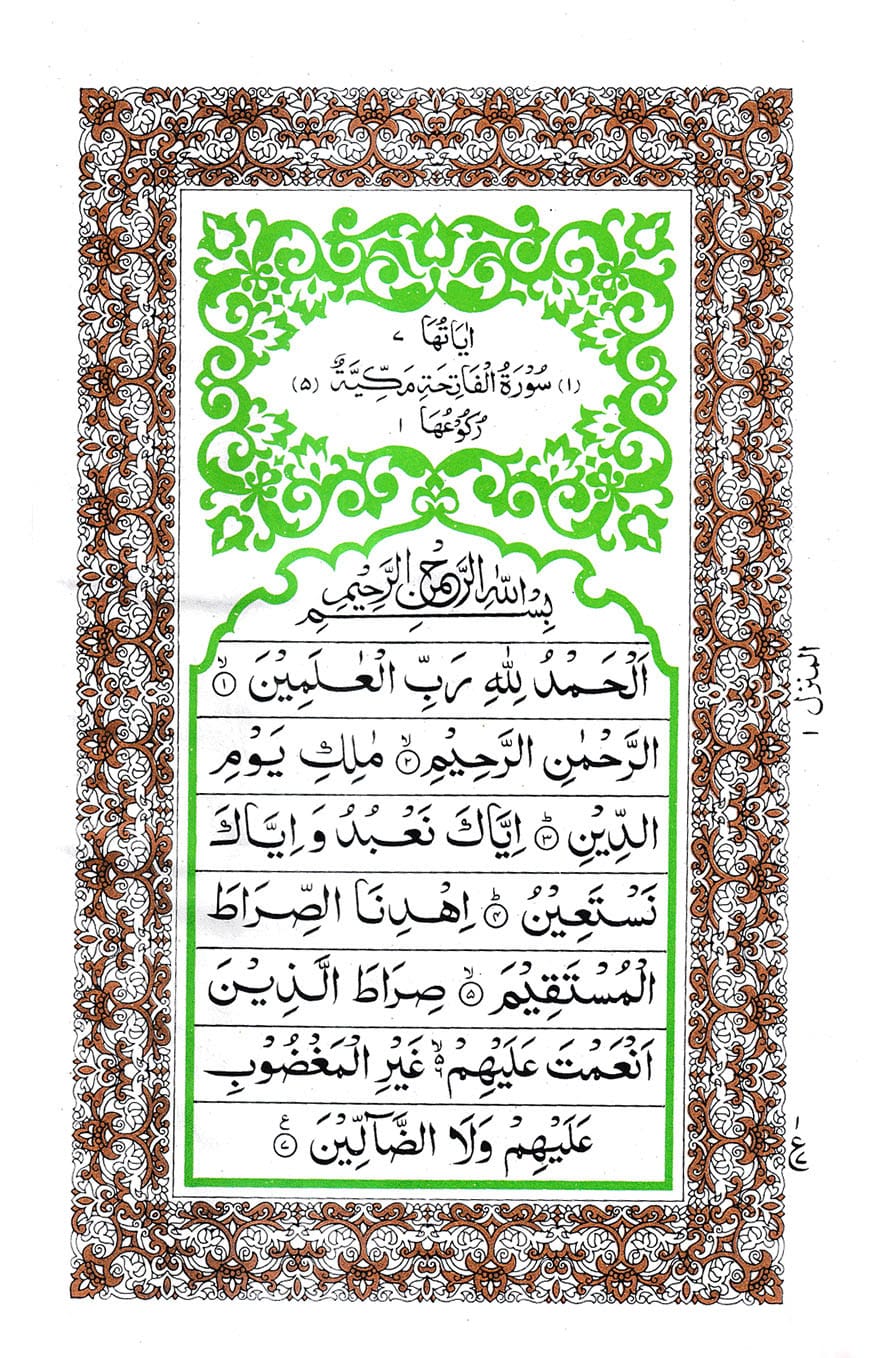 اٰیَاتُهَا ۷
(۱) سُوْرَةُ الْفَاتِحَةِ مَكِّيَّةٌ (۵)
رُكُوْعُهَا ۱
بِسْمِ اللّٰهِ الرَّحْمٰنِ الرَّحِيْمِ
اَلْحَمْدُ لِلّٰهِ رَبِّ الْعٰلَمِيْنَ ۙ﴿۱﴾
الرَّحْمٰنِ الرَّحِيْمِ ۙ﴿۲﴾ مٰلِكِ يَوْمِ
الدِّيْنِ ؕ﴿۳﴾ اِيَّاكَ نَعْبُدُ وَ اِيَّاكَ
نَسْتَعِيْنُ ؕ﴿۴﴾ اِهْدِنَا الصِّرَاطَ
الْمُسْتَقِيْمَ ۙ﴿۵﴾ صِرَاطَ الَّذِيْنَ
اَنْعَمْتَ عَلَيْهِمْ ۙ۬ غَيْرِ الْمَغْضُوْبِ
عَلَيْهِمْ وَلَا الضَّآلِّيْنَ ﴿۷﴾ ع
المنزل ۱
ع ۱